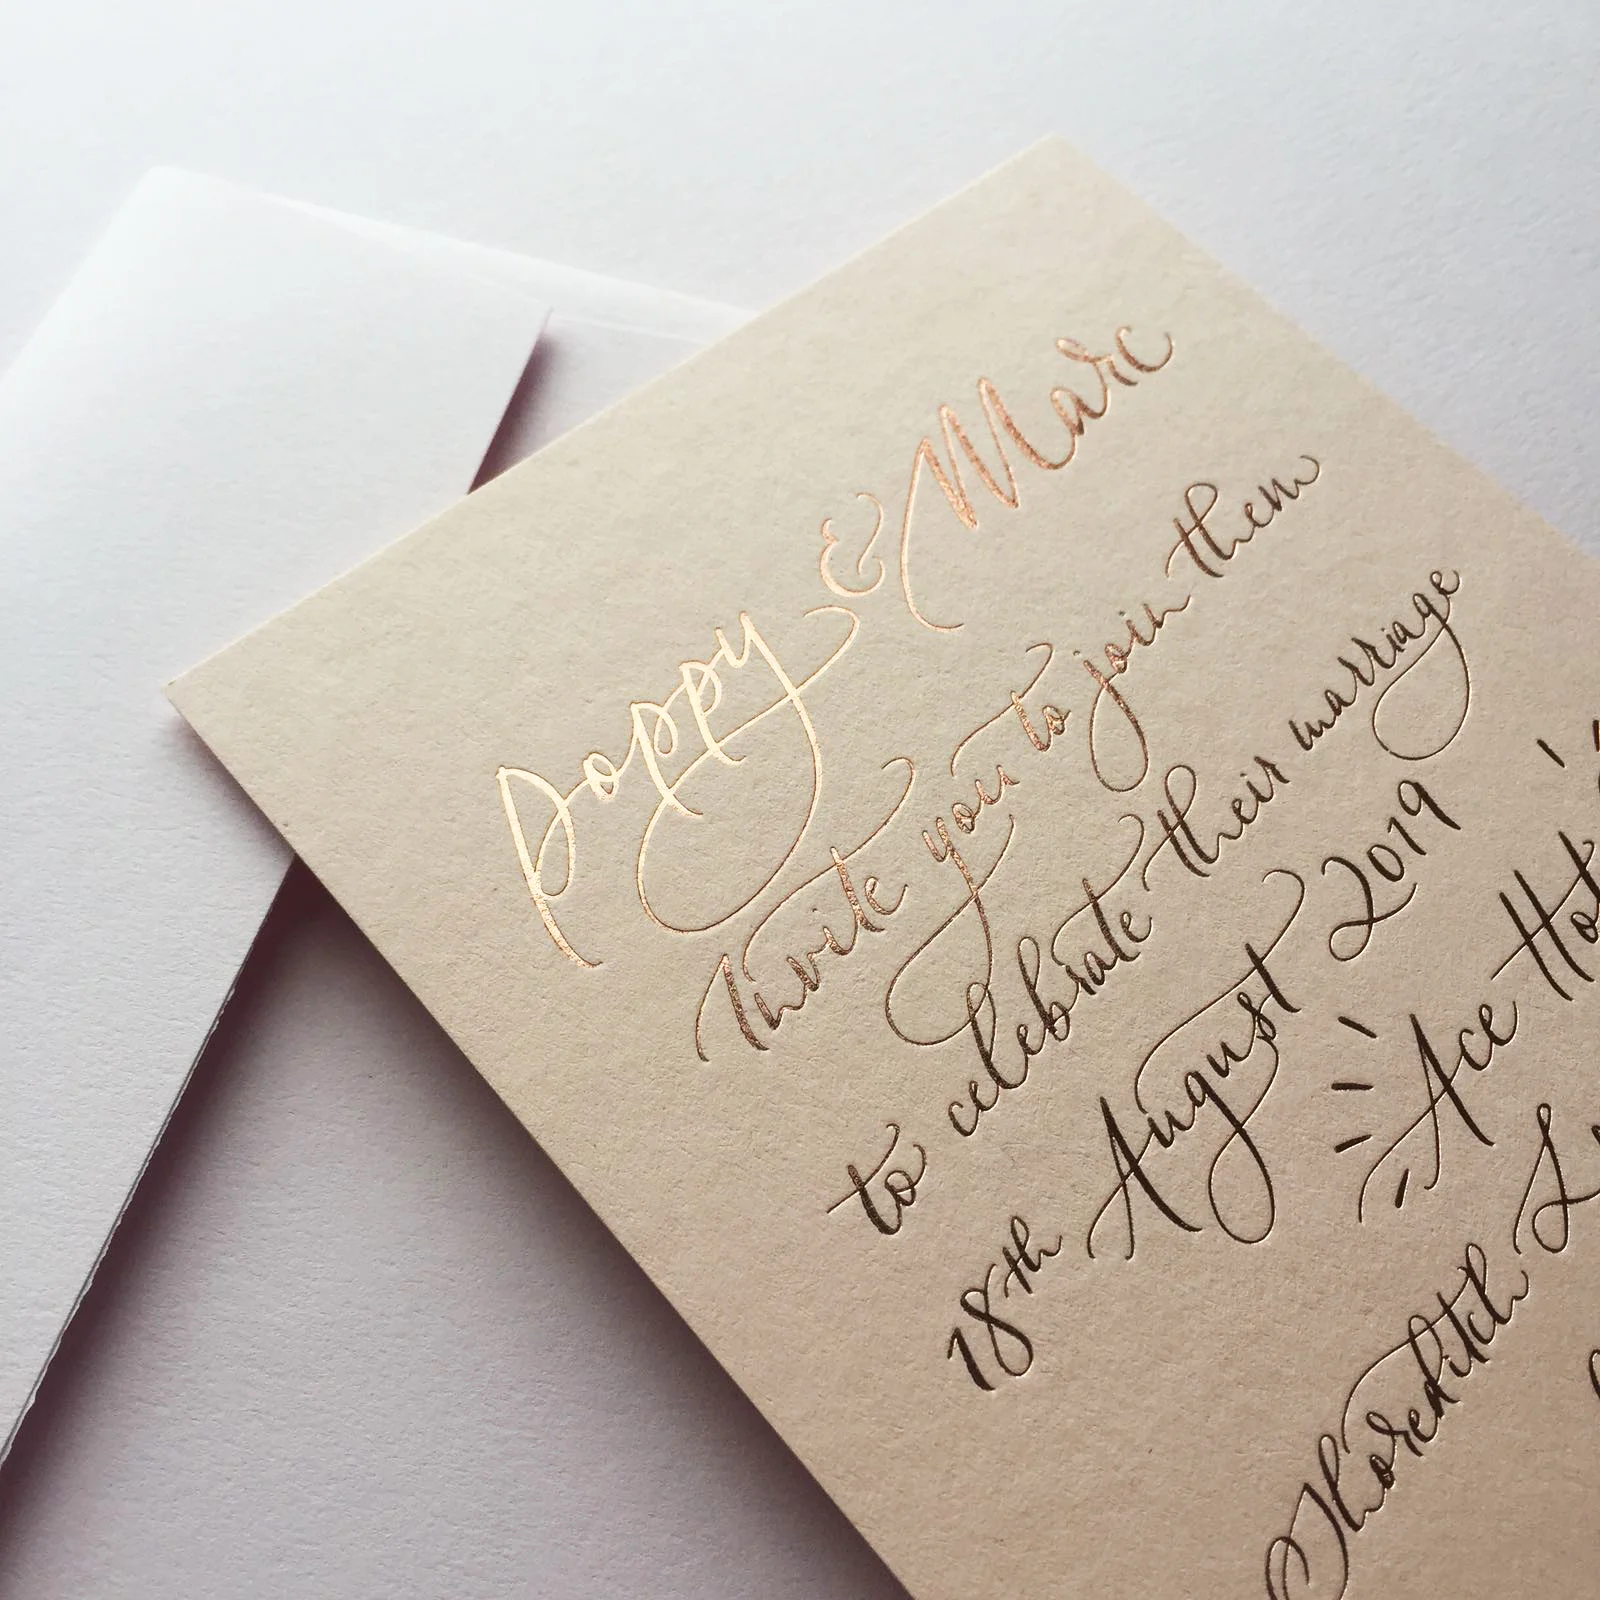 Poppy & Marc
Invite you to join them
to celebrate their marriage
18th August 2019
Ace Hot
Shoreditch